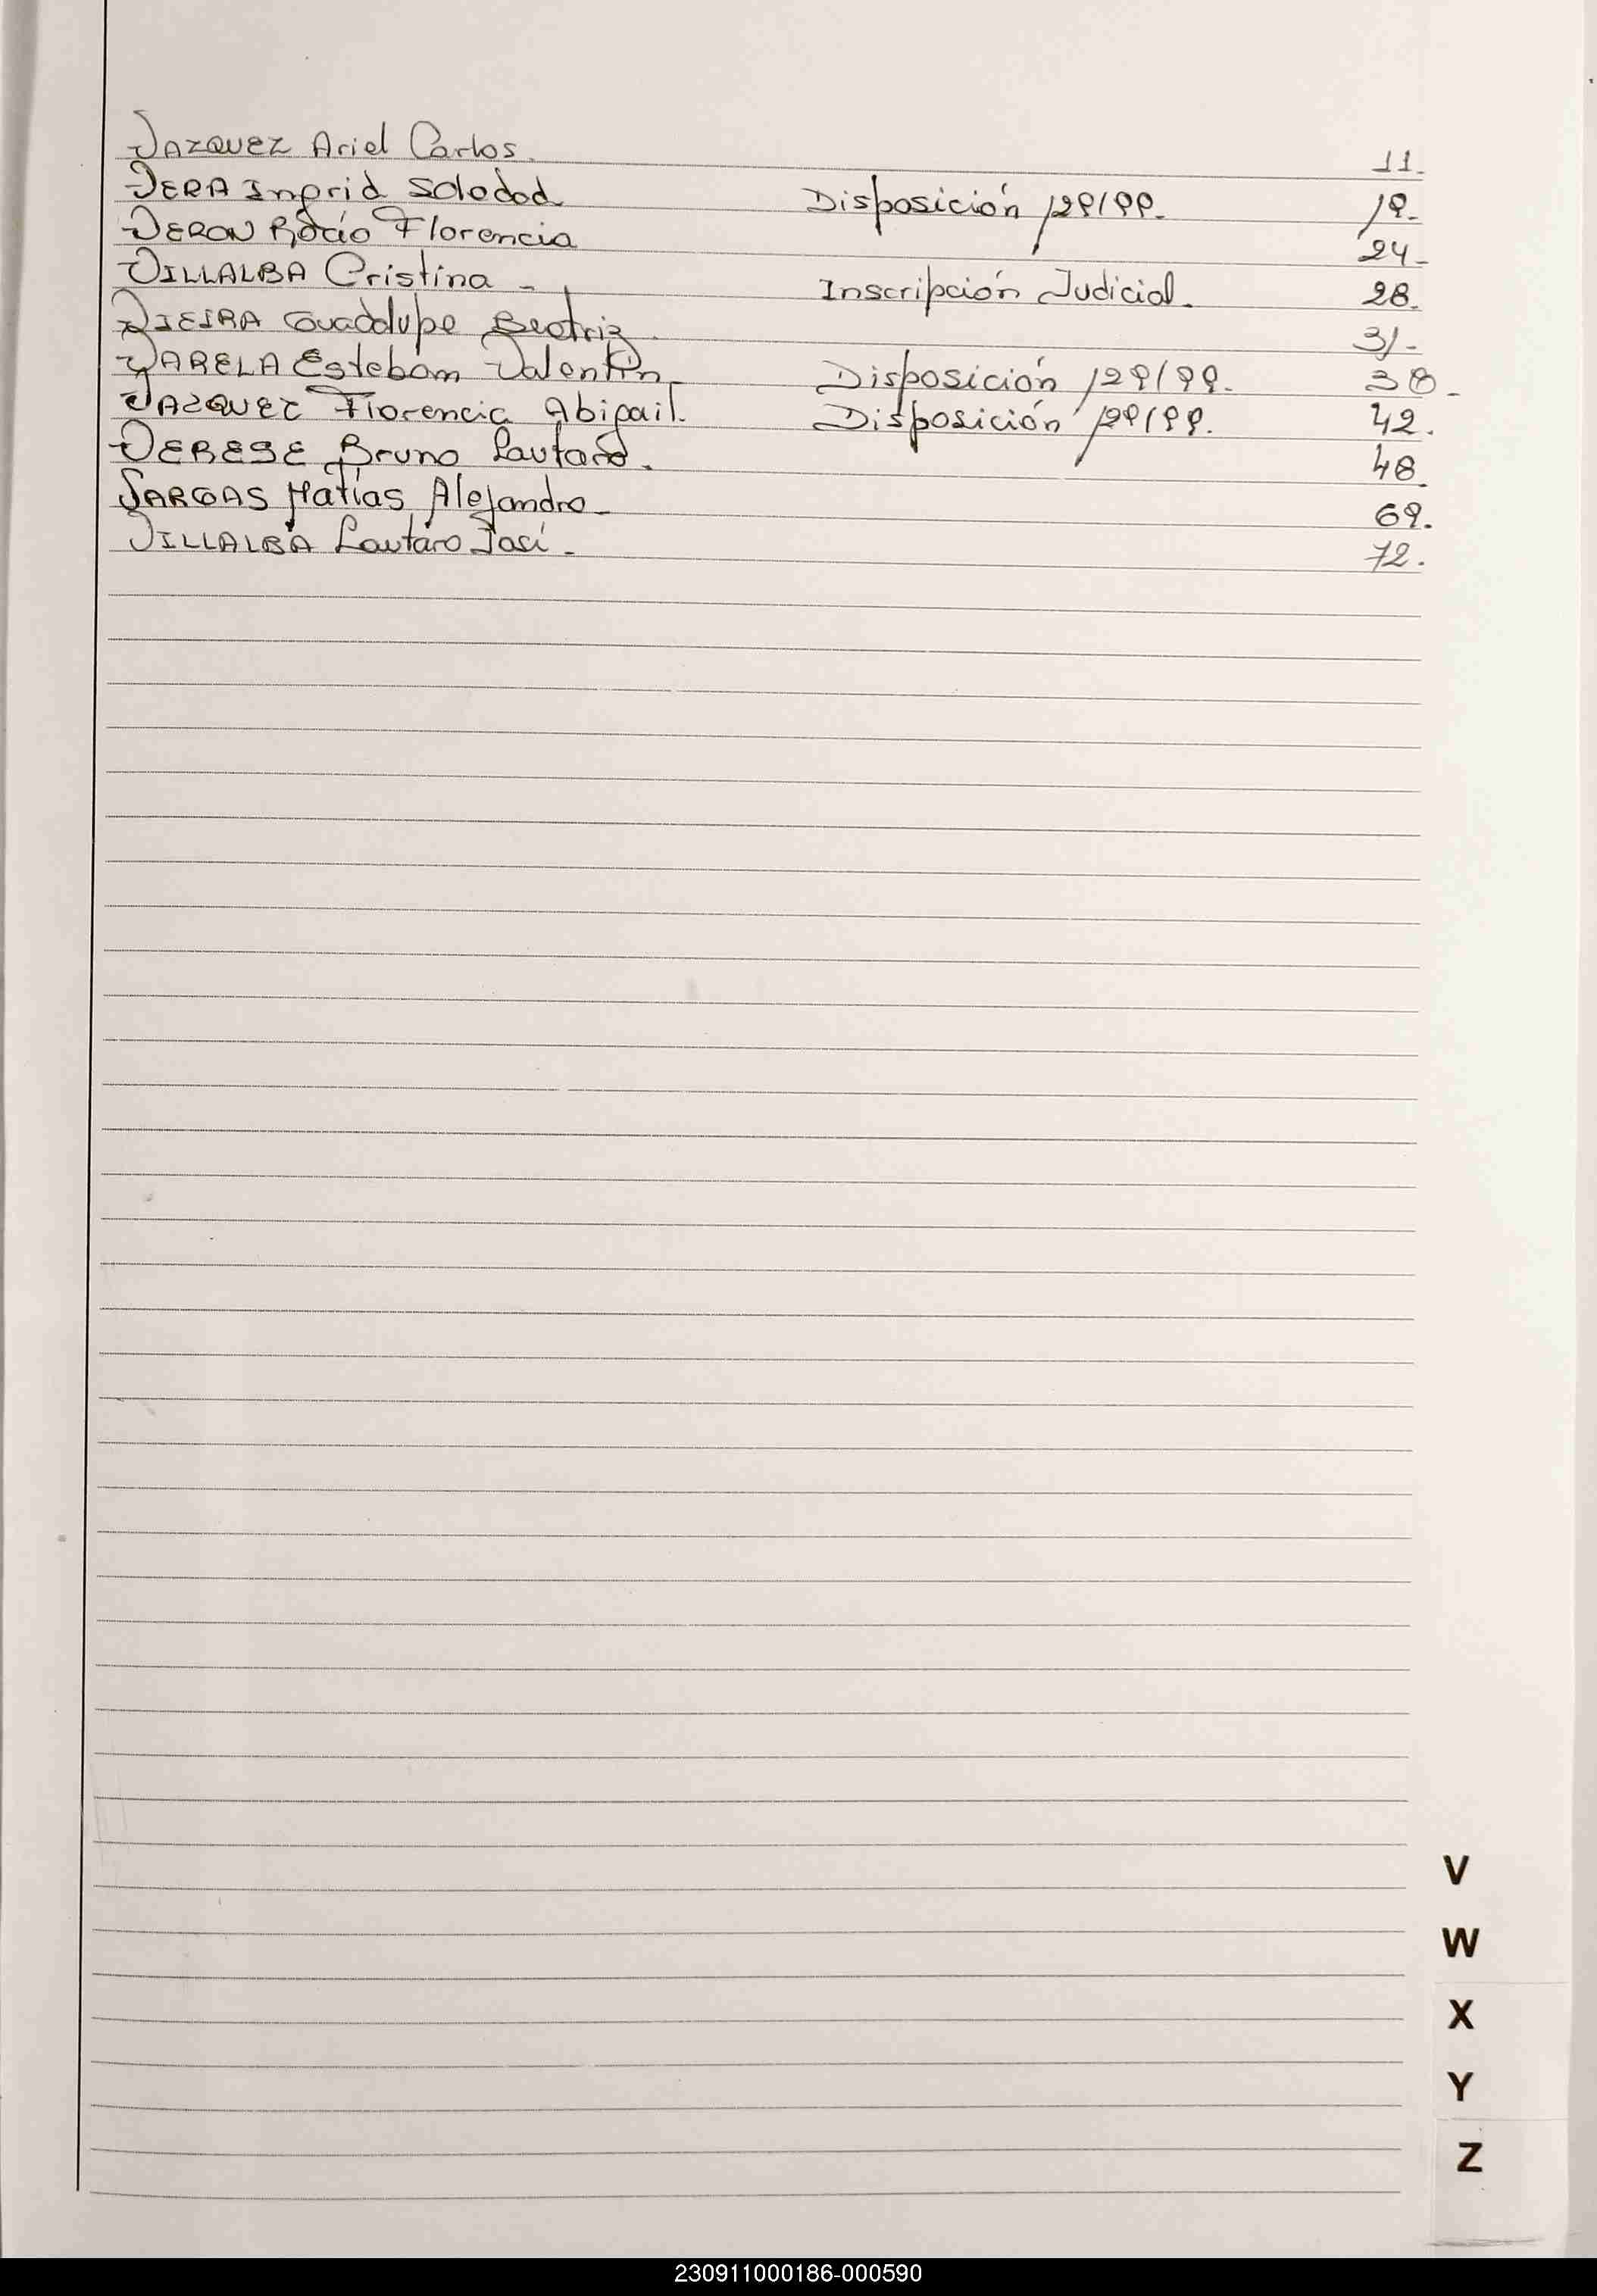 VAZQUEZ Ariel Carlos. 11.
VERA Ingrid Soledad Disposición 129/99. 19.
VERON Rocío Florencia 24-
VILLALBA Cristina - Inscripción Judicial. 28.
VIEIRA Guadalupe Beatriz. 31-
VARELA Esteban Valentín Disposición 129/99. 38-
VAZQUEZ Florencia Abigail. Disposición 129/99. 42.
VERESE Bruno Lautaro. 48.
VARGAS Matías Alejandro- 69.
VILLALBA Lautaro - 72.
V
W
X
Y
Z
230911000186-000590